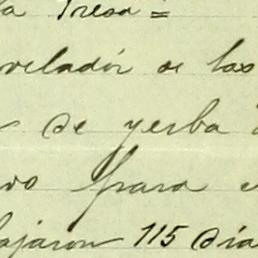 la Presa =
velador de las
de yerba
para
bajaron 115 dia